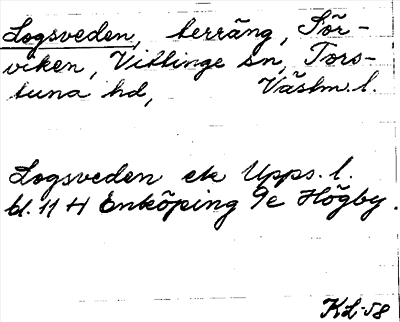 Logsveden, terräng, Sör-
viken, Vittinge sn, Tors-
tuna hd, Västm. l.
Logsveden ek Upps. l.
bl. 11 H Enköping 9e Högby.
KL-58